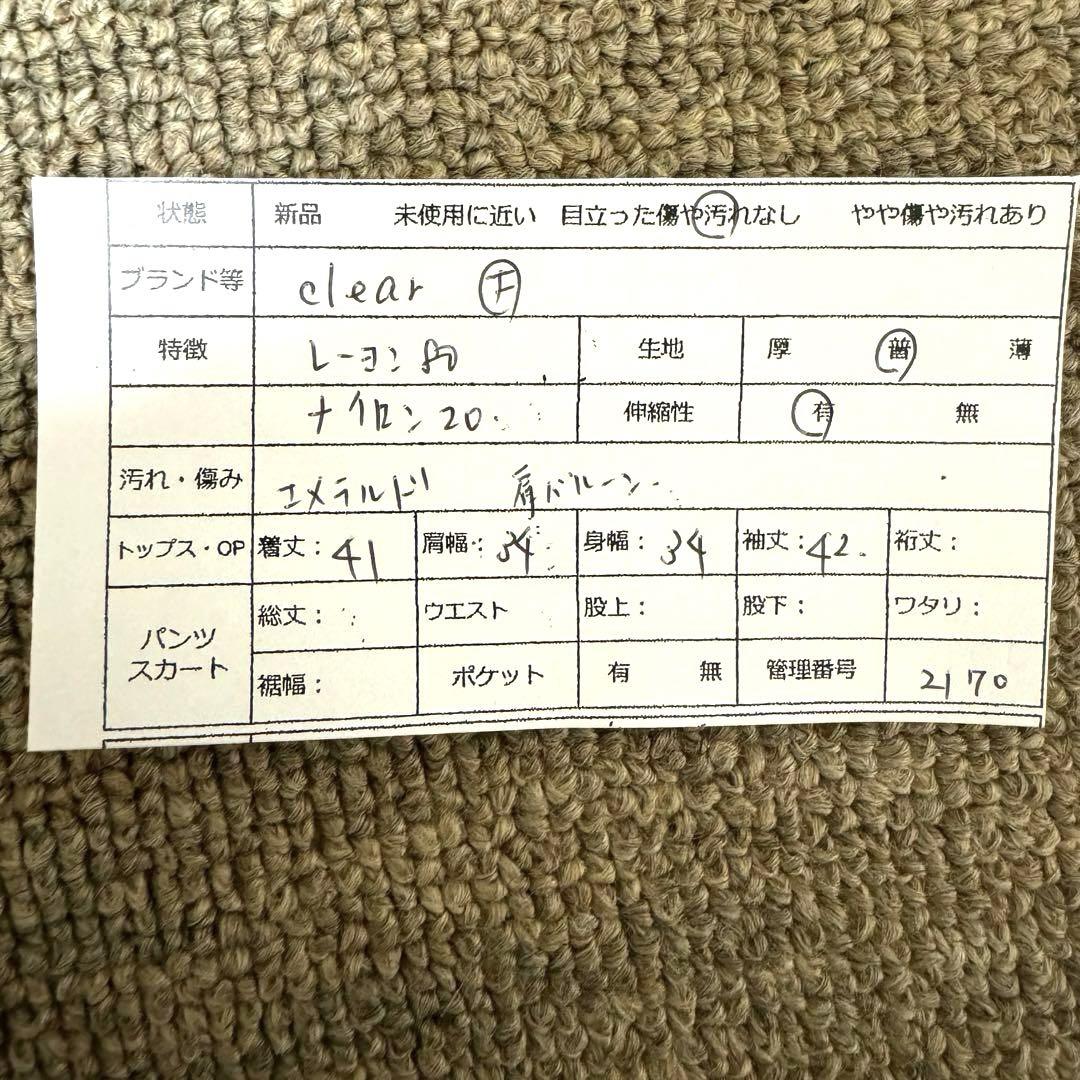 状態 新品 未使用に近い 目立った傷や汚れなし やや傷や汚れあり
ブランド等 clear F
特徴 レーヨン80 生地 厚 普 薄
ナイロン20 伸縮性 有 無
汚れ・傷み エメラルド 肩バルーン
トップス・OP 着丈：41 肩幅：34 身幅：34 袖丈：42 裄丈：
パンツ
スカート
総丈： ウエスト 股上： 股下： ワタリ：
裾幅： ポケット 有 無 管理番号 2170